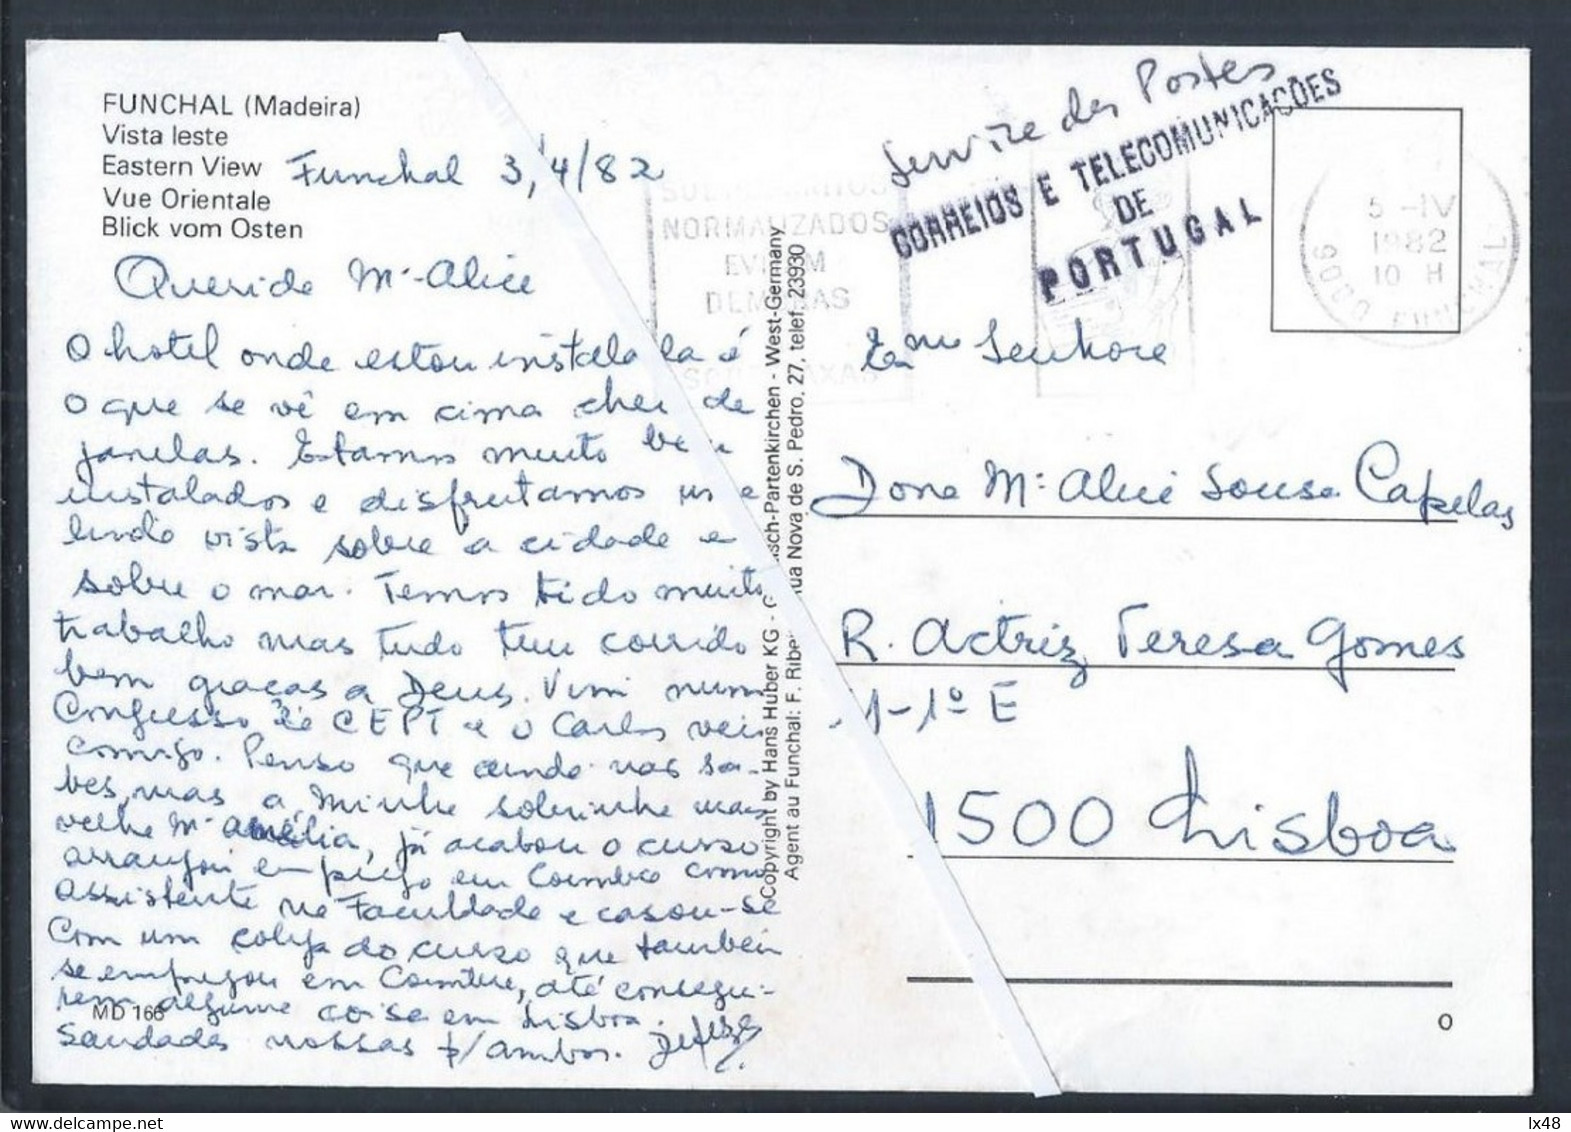 FUNCHAL (Madeira)
Vista leste
Eastern View
Vue Orientale
Blick vom Osten
Funchal 3/4/82
Querida Mª Alice
O hotel onde estou instalada é
o que se vê em cima cheio de
janelas. Estamos muito bem
instalados e disfrutamos uma
linda vista sobre a cidade e
sobre o mar. Temos tido muito
trabalho mas tudo tem corrido
bem graças a Deus. Vim num
Congresso da CEPT e o Carlos veio
comigo. Penso que ainda não sa-
bes, mas a minha sobrinha mais
velha Mª Amélia, já acabou o curso
arranjou emprego em Coimbra como
assistente na Faculdade e casou-se
com um colega do curso que também
se empregou em Coimbra, até consegui-
rem alguma coisa em Lisboa.
Saudades nossas p/ ambos.
MD 166
Copyright by Hans Huber KG - Partenkirchen - West-Germany
Agent au Funchal: F. Ribeiro Rua Nova de S. Pedro, 27, telef. 23930
NORMALIZADOS
EVITAM
DEMORAS
Service des Postes
CORREIOS E TELECOMUNICAÇÕES
DE
PORTUGAL
5 -IV
1982
10 H
9000 FUNCHAL
Exma Senhora
Dona Mª Alice Sousa Capelas
R. Actriz Teresa Gomes
1-1º E
1500 Lisboa
O
lx48